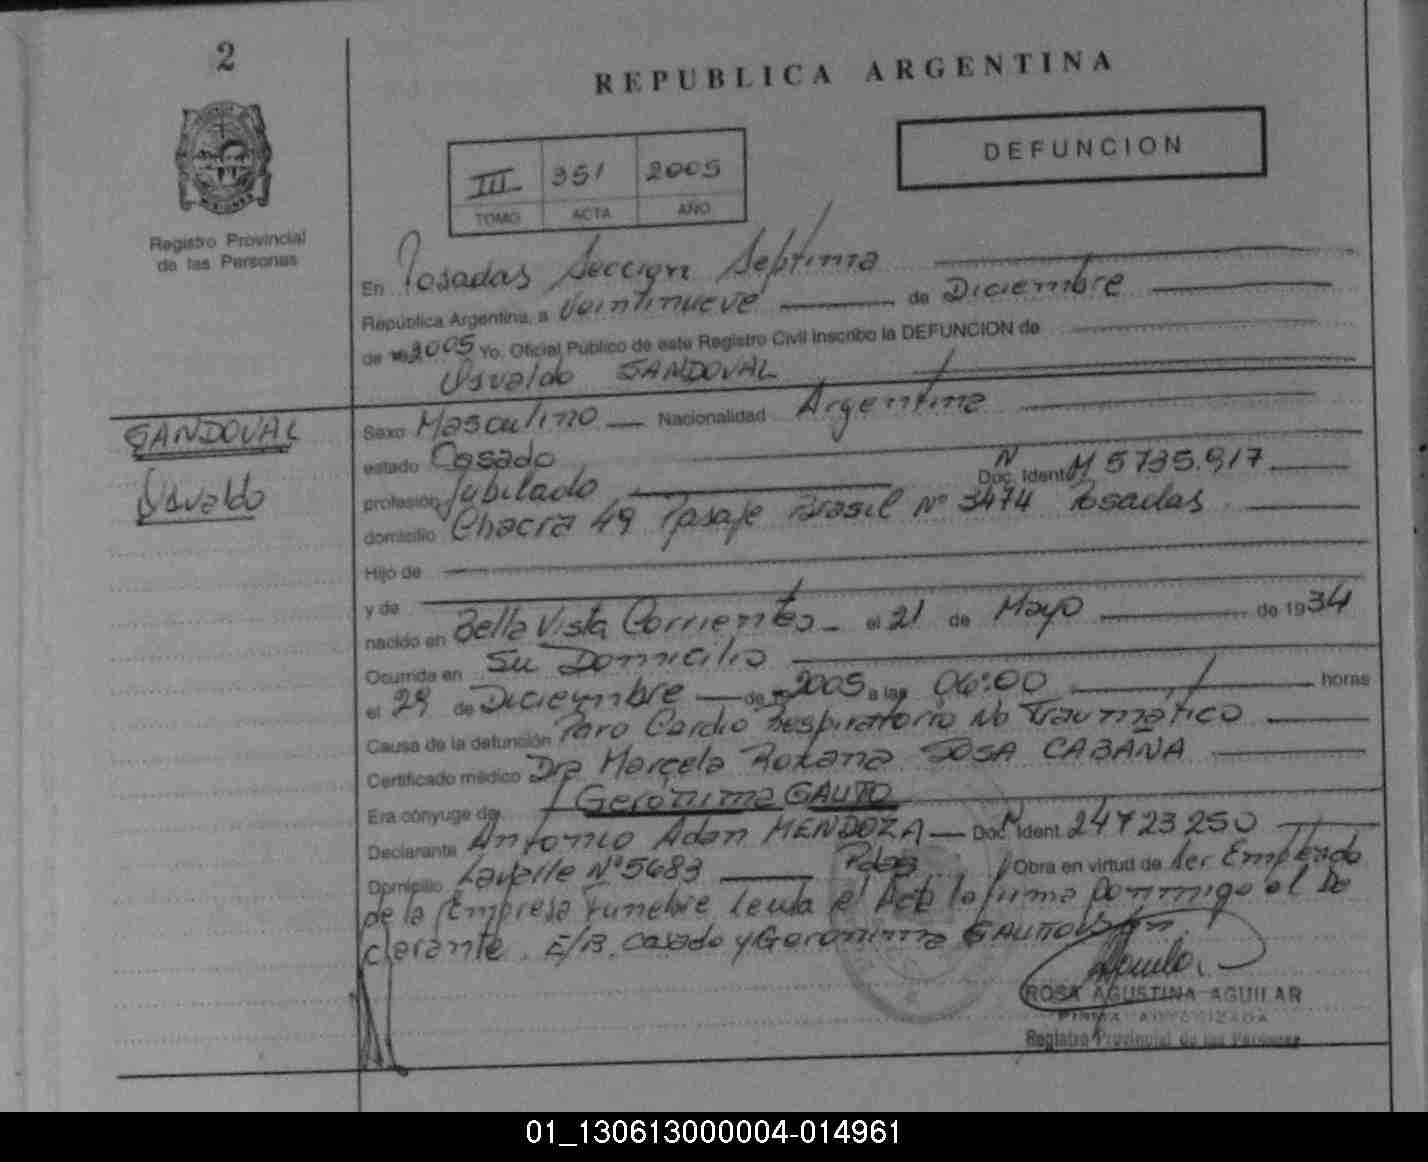 2
REPUBLICA ARGENTINA
DEFUNCION
III 351 2005
TOMO ACTA AÑO
Registro Provincial
de las Personas
En Posadas Sección Septima
República Argentina, a Veintinueve de Diciembre
de 2005 Yo, Oficial Público de este Registro Civil inscribo la DEFUNCION de
Osvaldo SANDOVAL
SANDOVAL
Osvaldo
Sexo Masculino Nacionalidad Argentina
estado Casado
profesión Jubilado Doc. Ident. M 5735.917
domicilio Chacra 49 Pasaje Brasil Nº 3474 Posadas
Hijo de
y de
nacido en Bella Vista Corrientes el 21 de Mayo de 1934
Ocurrida en Su Domicilio
el 29 de Diciembre de 2005 a las 06:00 horas
Causa de la defunción Paro Cardio Respiratorio No Traumático
Certificado médico Dra Marcela Roxana SOSA CABAÑA
Era cónyuge de Gerónima GAUTO
Declarante Antonio Adan MENDOZA Doc. Ident. 24723250
Domicilio Lavalle Nº 5683 Pdas Obra en virtud de Ser Empleado
de la Empresa Funebre Leida el Acta la firma Conmigo el De
clarante. E/B. Casado y Geronima GAUTO
ROSA AGUSTINA AGUILAR
FIRMA AUTORIZADA
Registro Provincial de las Personas
01_130613000004-014961